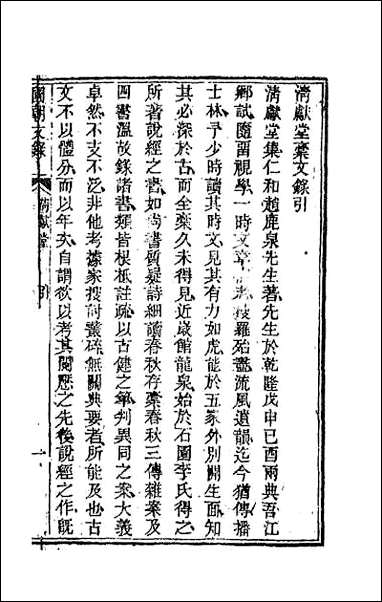 清獻堂藁文錄引
清獻堂集仁和趙鹿泉先生著先生於乾隆戊申己酉兩典吾江
鄉試隨留視學一時文章搜羅殆盡流風遺韻迄今猶傳播
士林予少時讀其時文見其有力如虎能於五家外別開生面知
其必深於古而全藁久未得見近歲館龍泉始於石園李氏得之
所著說經之書如尚書質疑詩細讀春秋存藁春秋三傳雜案及
四書溫故錄諸書類皆根柢註疏以古健之筆判異同之案大義
卓然不支不泛非他考據家搜討叢碎無關典要者所能及也古
文不以體分而以年次自謂欲以考其閱歷之先後說經之作旣
國朝文錄
清獻堂 引
一